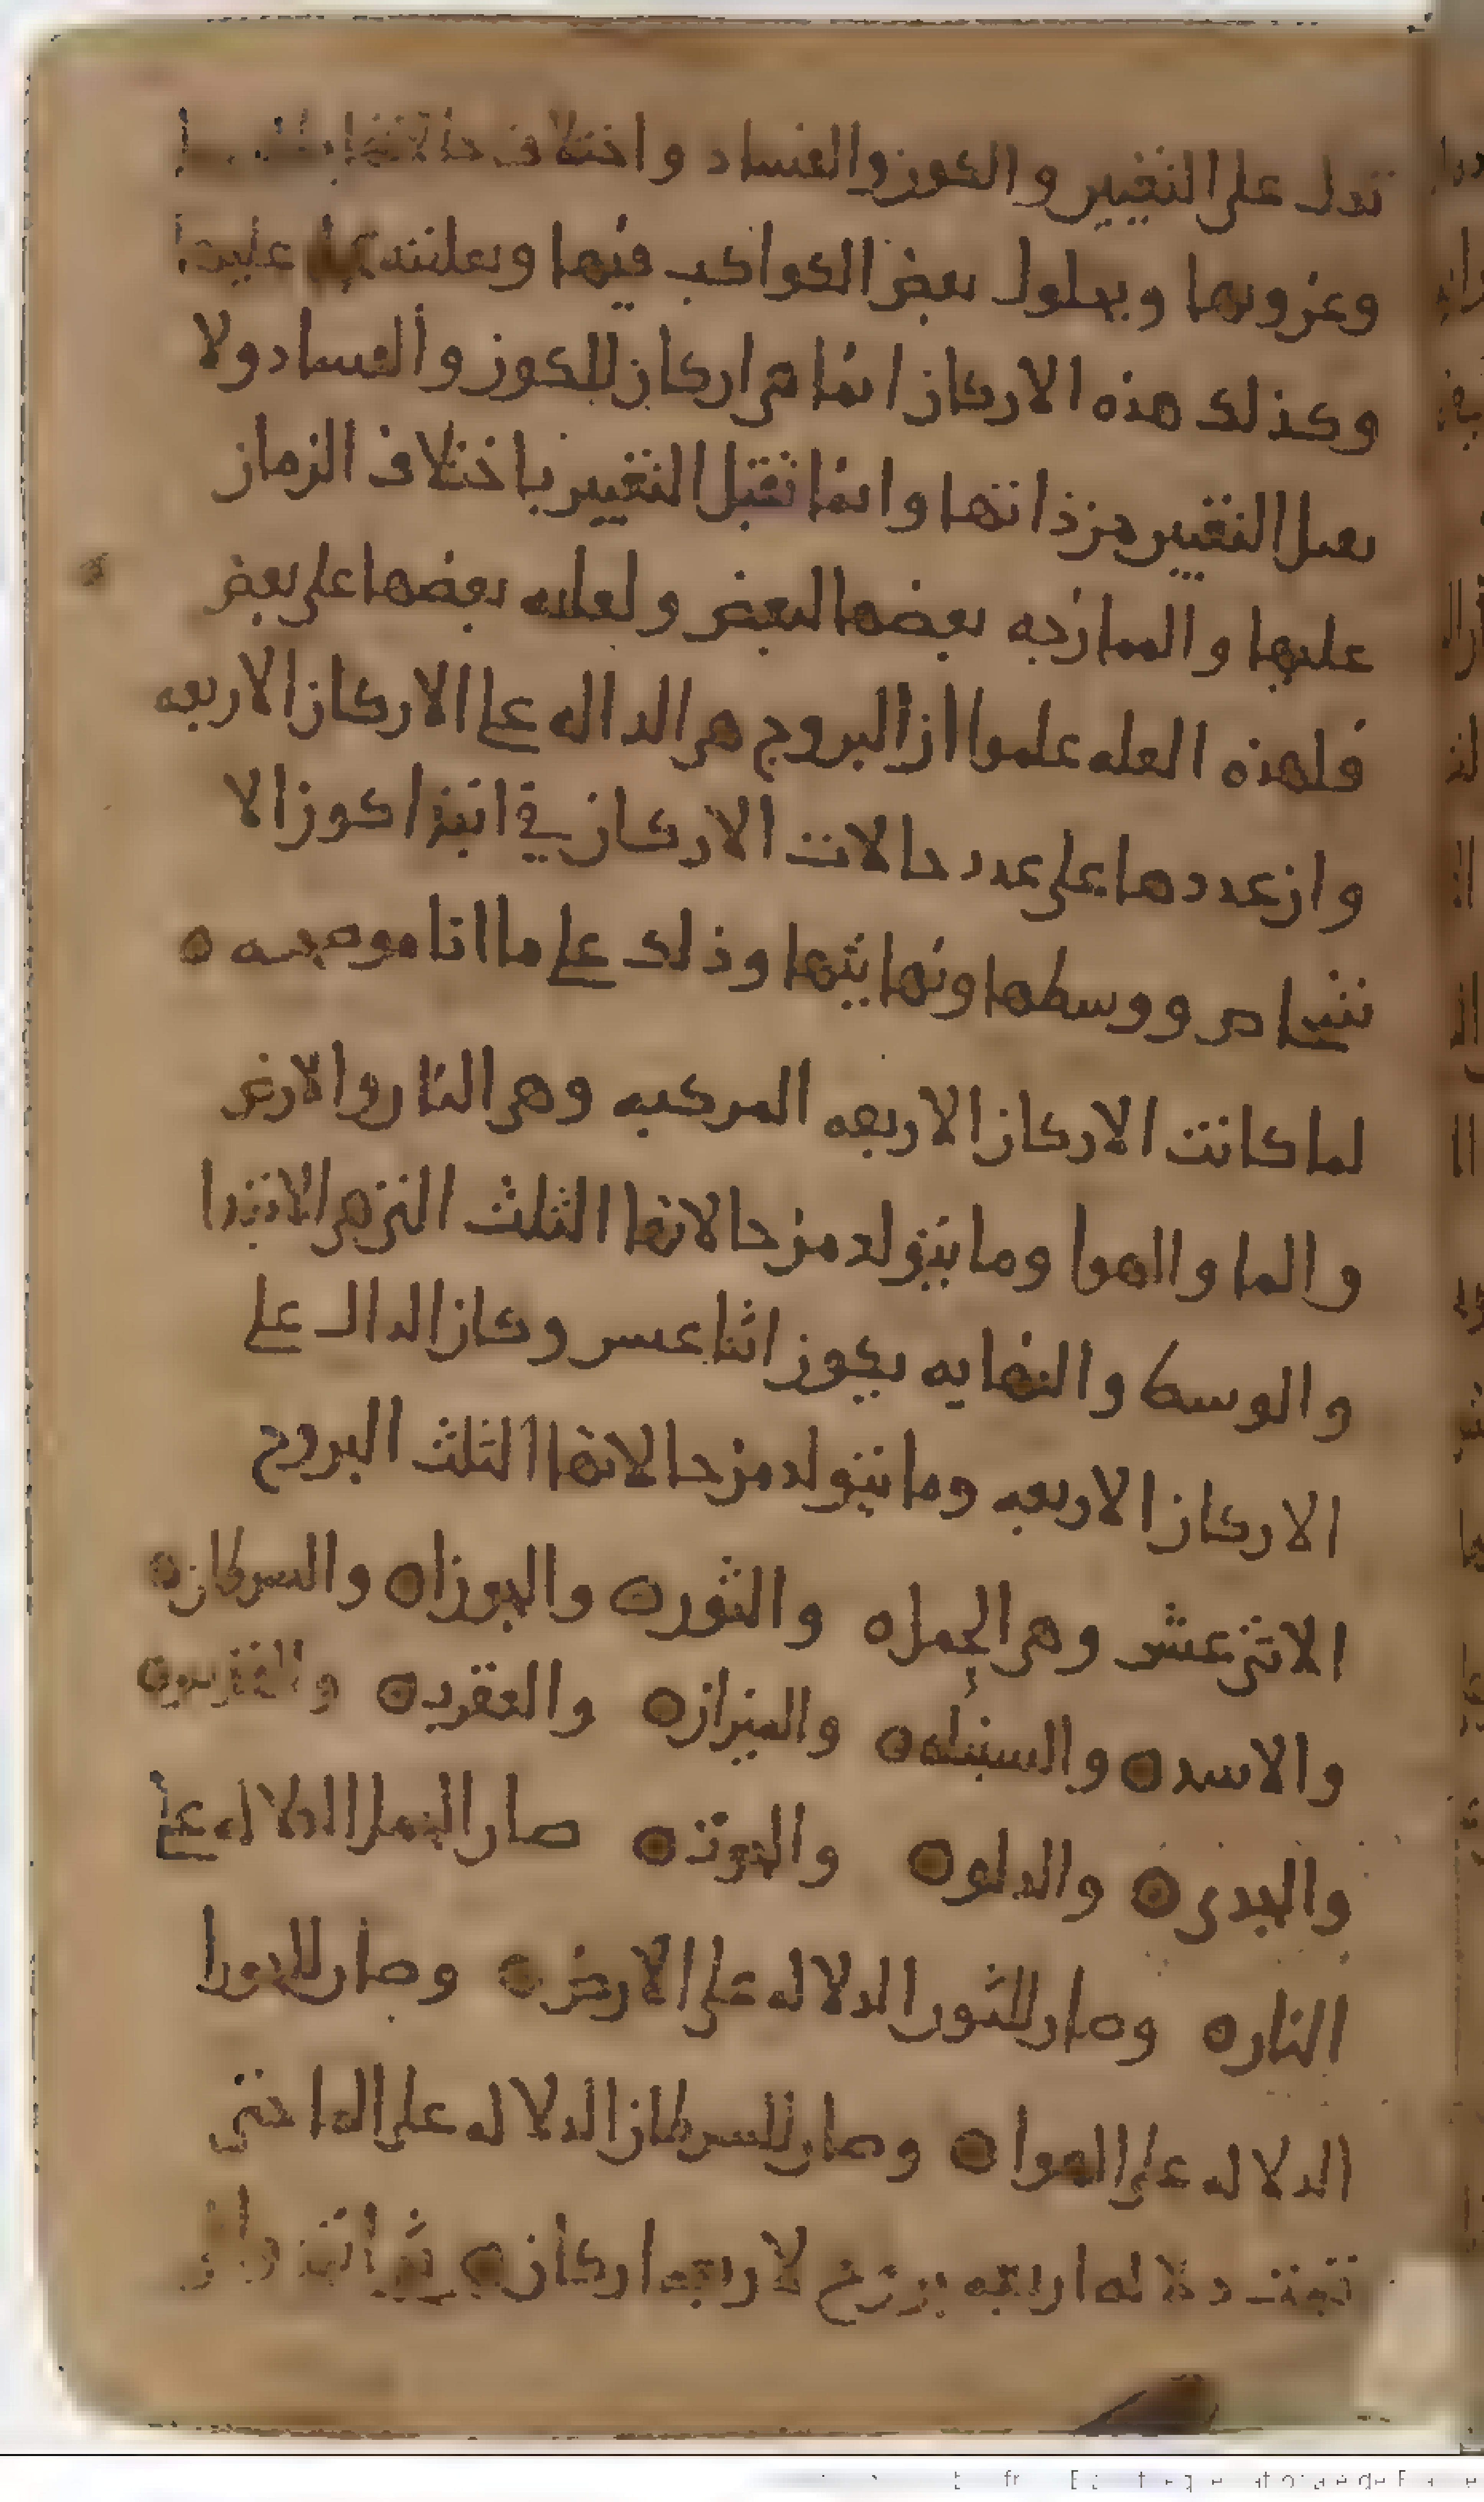 تدل على التغيير والكون والفساد واختلاف حالاتها
وغروبها وبحلول بعض الكواكب فيها عليها
وكذلك هذه الاركان انما هى اركان للكون والفساد ولا
تقبل التغيير من ذاتها وانما تقبل التغيير باختلاف الزمان
عليها والممازجه بعضها لبعض ولغلبه بعضها على بعض
فلهذه العله علموا ان البروج هى الداله على الاركان الاربعه
وان عددها على عدد حالات الاركان في ابتدا كون الا
شخاص ووسطها ونهايتها وذلك على ما انا موضحه ه
لما كانت الاركان الاربعه المركبه وهى النار والارض
والما والهوا وما يتولد من حالاتها الثلث التى هى الابتدا
والوسط والنهايه يكون اثنا عشر وكان الدال على
الاركان الاربعه وما يتولد من حالاتها الثلث البروج
الاثنى عشر وهى الحمل ه والثور ه والجوزا ه والسرطان ه
والاسد ه والسنبله ه والميزان ه والعقرب ه والقوس ه
والجدى ه والدلو ه والحوت ه صار للحمل الدلاله على
النار ه وصار للثور الدلاله على الارض ه وصار للجوزا
الدلاله على الهوا ه وصار للسرطان الدلاله على الما حتى
تمت دلاله اربعه بروج لاربعه اركان ه